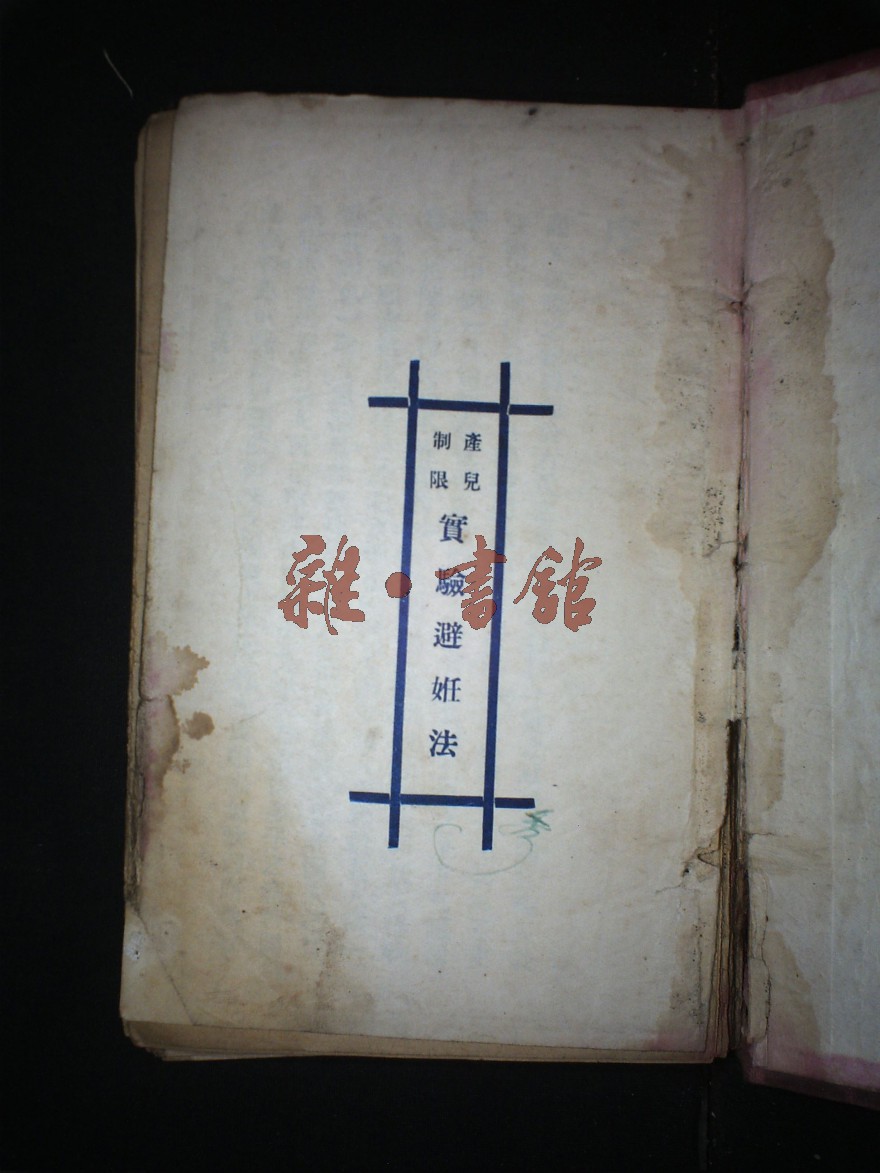 產兒
制限
實驗避姙法
雜·書館